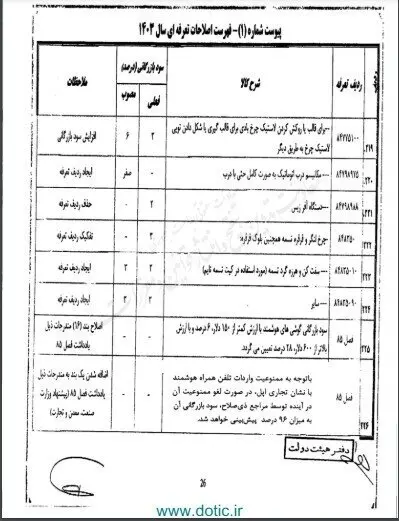 پیوست شماره (۱)- فهرست اصلاحات تعرفه ای سال ۱۴۰۳
ردیف تعرفه
شرح کالا
سود بازرگانی (درصد)
فعلی
مصوب
ملاحظات
۲۱۹
۸۴۷۷۵۱۰۰
--برای قالب یا روکش کردن لاستیک چرخ بادی برای قالب گیری یا شکل دادن تویی
لاستیک چرخ به طریق دیگر
۲
۶
افزایش سود بازرگانی
۲۲۰
۸۴۷۹۸۹۷۵
---مکانیسم درب اتوماتیک به صورت کامل حتی با درب
-
صفر
ایجاد ردیف تعرفه
۲۲۱
۸۴۷۹۸۹۸۸
۲
-
حذف ردیف تعرفه
۲۲۲
۸۴۸۳۵۰
-چرخ لنگر و قرقره تسمه همچنین بلوک قرقره:
-
تفکیک ردیف تعرفه
۲۲۳
۸۴۸۳۵۰۱۰
---سفت کن و هرزه گرد تسمه (مورد استفاده در کیت تسمه تایم)
۲
۲
ایجاد ردیف تعرفه
۲۲۴
۸۴۸۳۵۰۹۰
--- سایر
۲
۲
ایجاد ردیف تعرفه
۲۲۵
فصل ۸۵
سود بازرگانی گوشی های هوشمند با ارزش کمتر از ۱۵۰ دلار، ۶ درصد و با ارزش
بالاتر از ۶۰۰ دلار، ۲۸ درصد تعیین می گردد.
-
-
اصلاح بند (۱۶) مندرجات ذیل
یادداشت فصل ۸۵
۲۲۶
فصل ۸۵
باتوجه به ممنوعیت واردات تلفن همراه هوشمند
با نشان تجاری اپل، در صورت لغو ممنوعیت آن
در آینده توسط مراجع ذی‌صلاح، سود بازرگانی آن
به میزان ۹۶ درصد پیش‌بینی خواهد شد.
-
-
اضافه شدن یک بند به مندرجات ذیل
یادداشت فصل ۸۵ (پیشنهاد وزارت
صنعت، معدن و تجارت)
دفتر هیئت دولت
26
www.dotic.ir